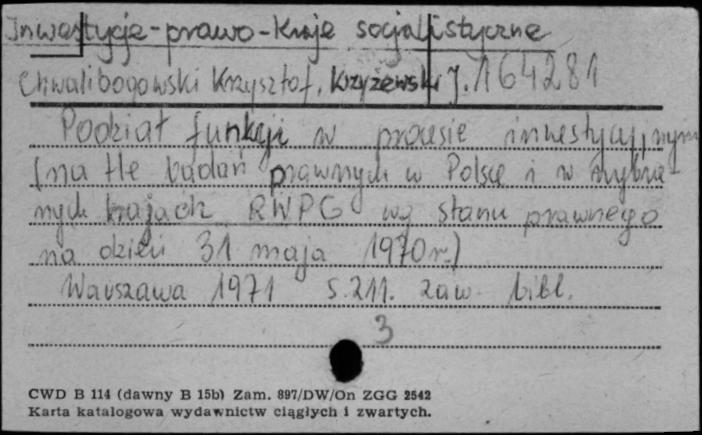 Inwestycje - prawo - Kraje socjalistyczne
Chwalibogowski Krzysztof, Krzyżewski J. 164281
Podział funkcji w procesie inwestycyjnym
(na tle badań prawnych w Polsce i w wybra-
nych krajach RWPG wg stanu prawnego
na dzień 31 maja 1970 r.)
Warszawa 1971 s. 211. zaw. bibl.
3
CWD B 114 (dawny B 15b) Zam. 897/DW/On ZGG 2542
Karta katalogowa wydawnictw ciągłych i zwartych.